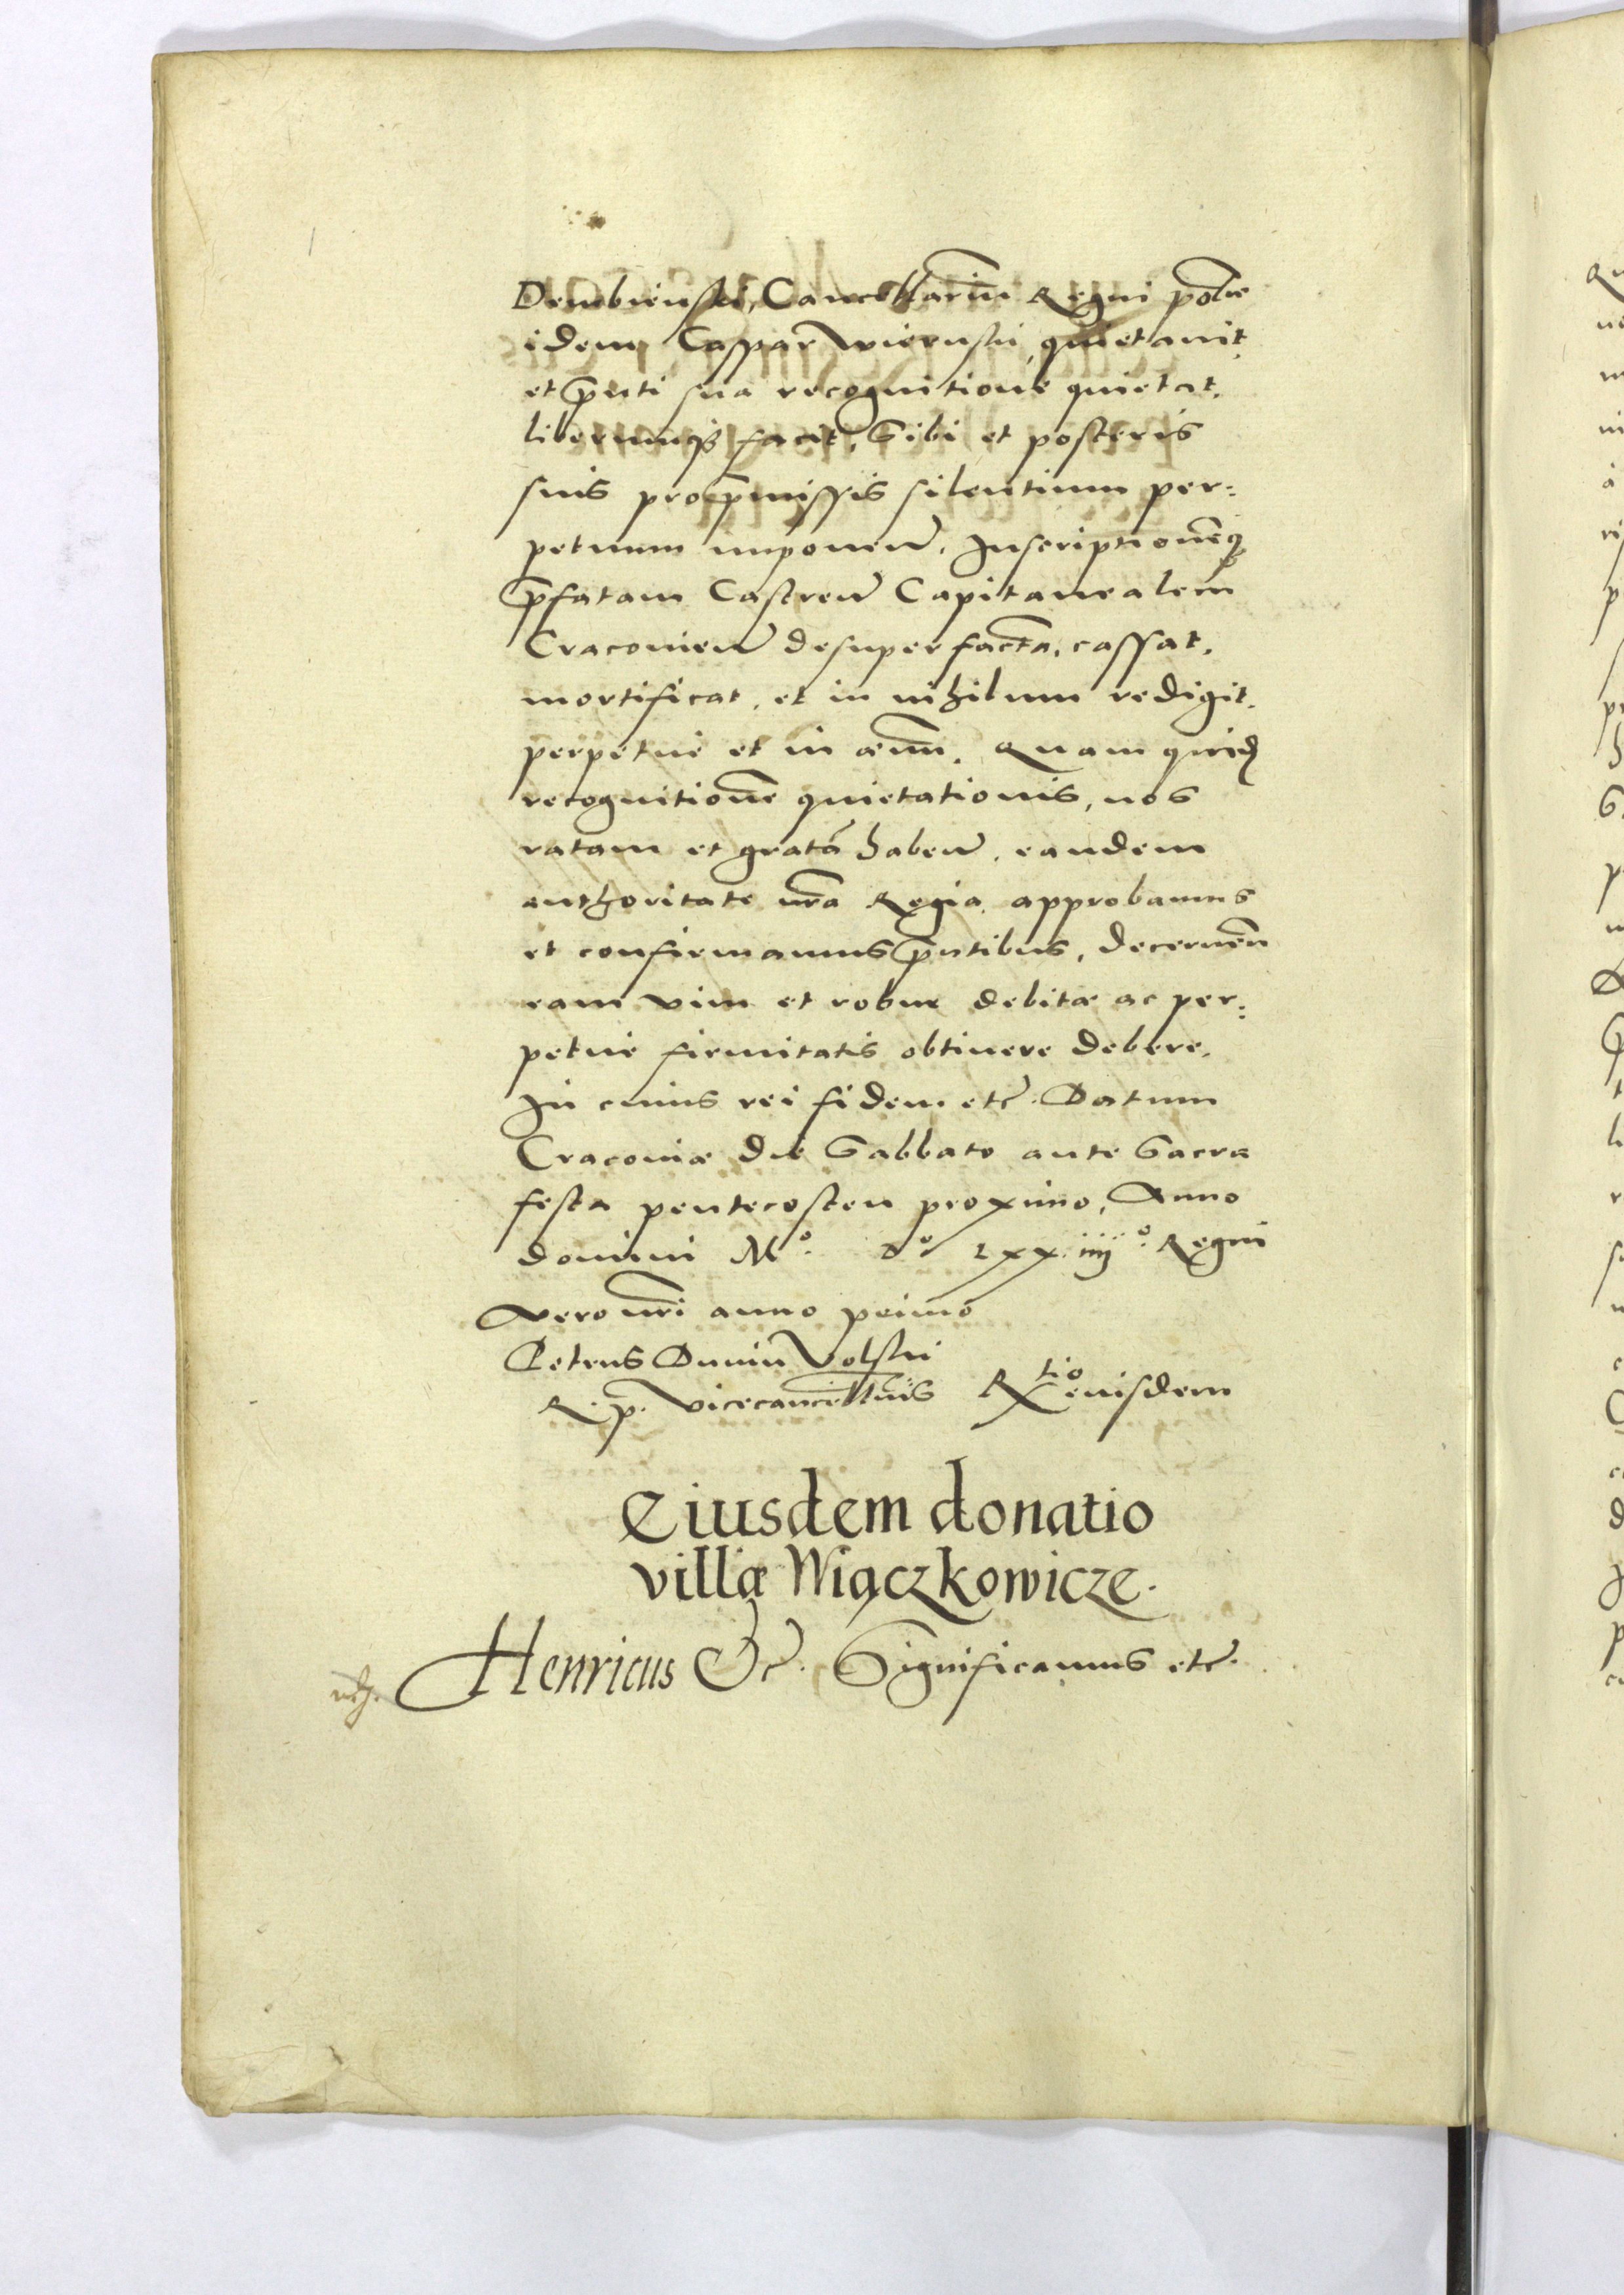 Dembiensky, Cancellariũ Regni Polõie
idem Caspar Wierusky, quietavit,
et p̃nti sua recognitione quietat.
liberumq3 facit, Sibi et posteris
suis pro p̃missis silentium per:
petuum imponeñ. Inscriptionẽq3
p̃fatam Castreñ Capitanealem
Cracovieñ desuper factã, cassat,
mortificat, et in nihilum redigit.
perpetue et in ævũ. Quam quidẽ
recognitionẽ quietationis, nos
ratam et gratã habeñ, eandem
authoritate nr̃a Regia approbamus
et confirmamus p̃ntibus, decerneñ
eam vim et robur debitæ ac per:
petue firmitatis obtinere debere.
In cuius rei fidem etc̃. Datum
Cracoviæ die Sabbato ante Sacra
festa pentecosten proximo, Anno
domini Mº. Dº LXX.iiijº. Regni
vero nr̃i anno primo
Petrus Dunin Volsky
R. P. Vicecancellariũs R͠tio eiusdem
Eiusdem donatio
villæ Wiączkowicze.
Henricus &c̃. Significamus etc̃.